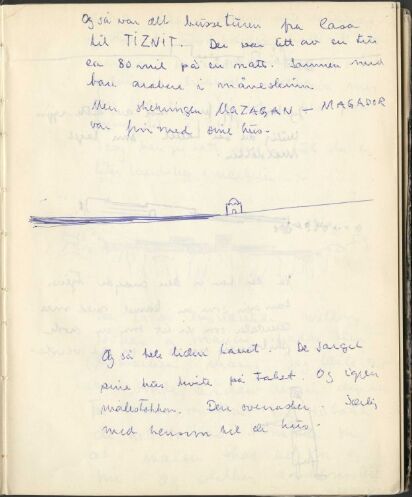 Og så var det bussturen fra Casa
til TIZNIT. Den var litt av en tur
ca 80 mil på en natt. Sammen med
bare arabere i måneskinn.
Men strekningen MAZAGAN – MAGADOR
var fin med sine hus.
Og så hele tiden havet. De
sine hus hvite på taket. Og igjen
målestokken. Den overrasker. Særlig
med hensyn til de hus.